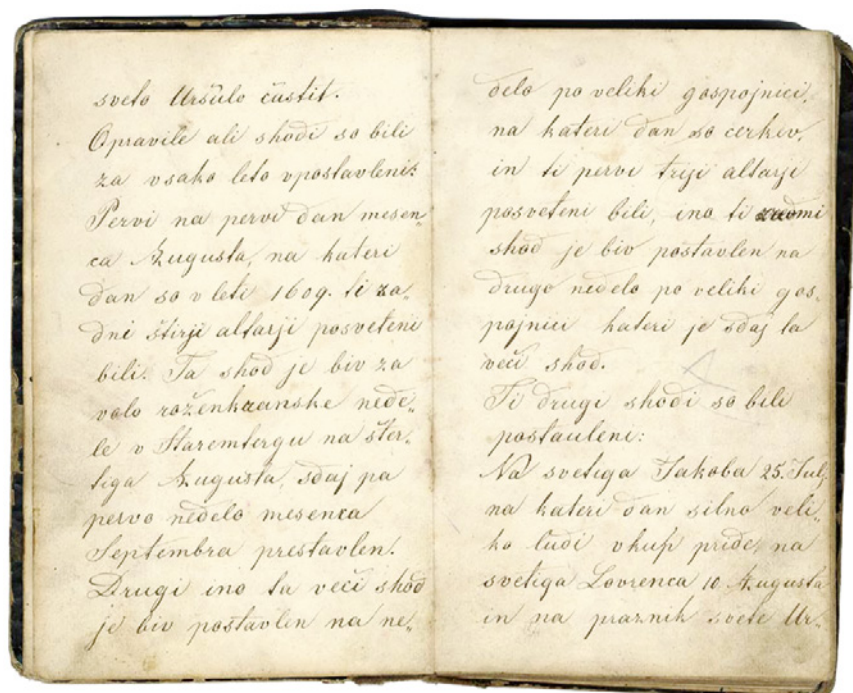 sveto Uršulo častit.
Opravile ali shodi so bili
za vsako leto vpostavleni:
Pervi na pervi dan mesen„
ca Augusta, na kateri
dan so v leti 1609. ti za„
dni štirji altarji posvečeni
bili. Ta shod je biv za
volo roženkranske nede„
le v Staremtergu na šter„
tiga Augusta, sdaj pa
pervo nedelo mesenca
Septembra prestavlen.
Drugi ino ta veči shod
je biv postavlen na ne„
delo po veliki gospojnici,
na kateri dan so cerkev,
in ti pervi trji altarji
posvečeni bili, ino ti
shod je biv postavlen na
drugo nedelo po veliki gos„
pojnici kateri je sdaj ta
veči shod.
Ti drugi shodi so bili
postauleni:
Na svetiga Jakoba 25. Julj
na kateri dan silno veli„
ko ludi vkup pride, na
svetiga Lovrenca 10. Augusta
in na praznik svete Ur„